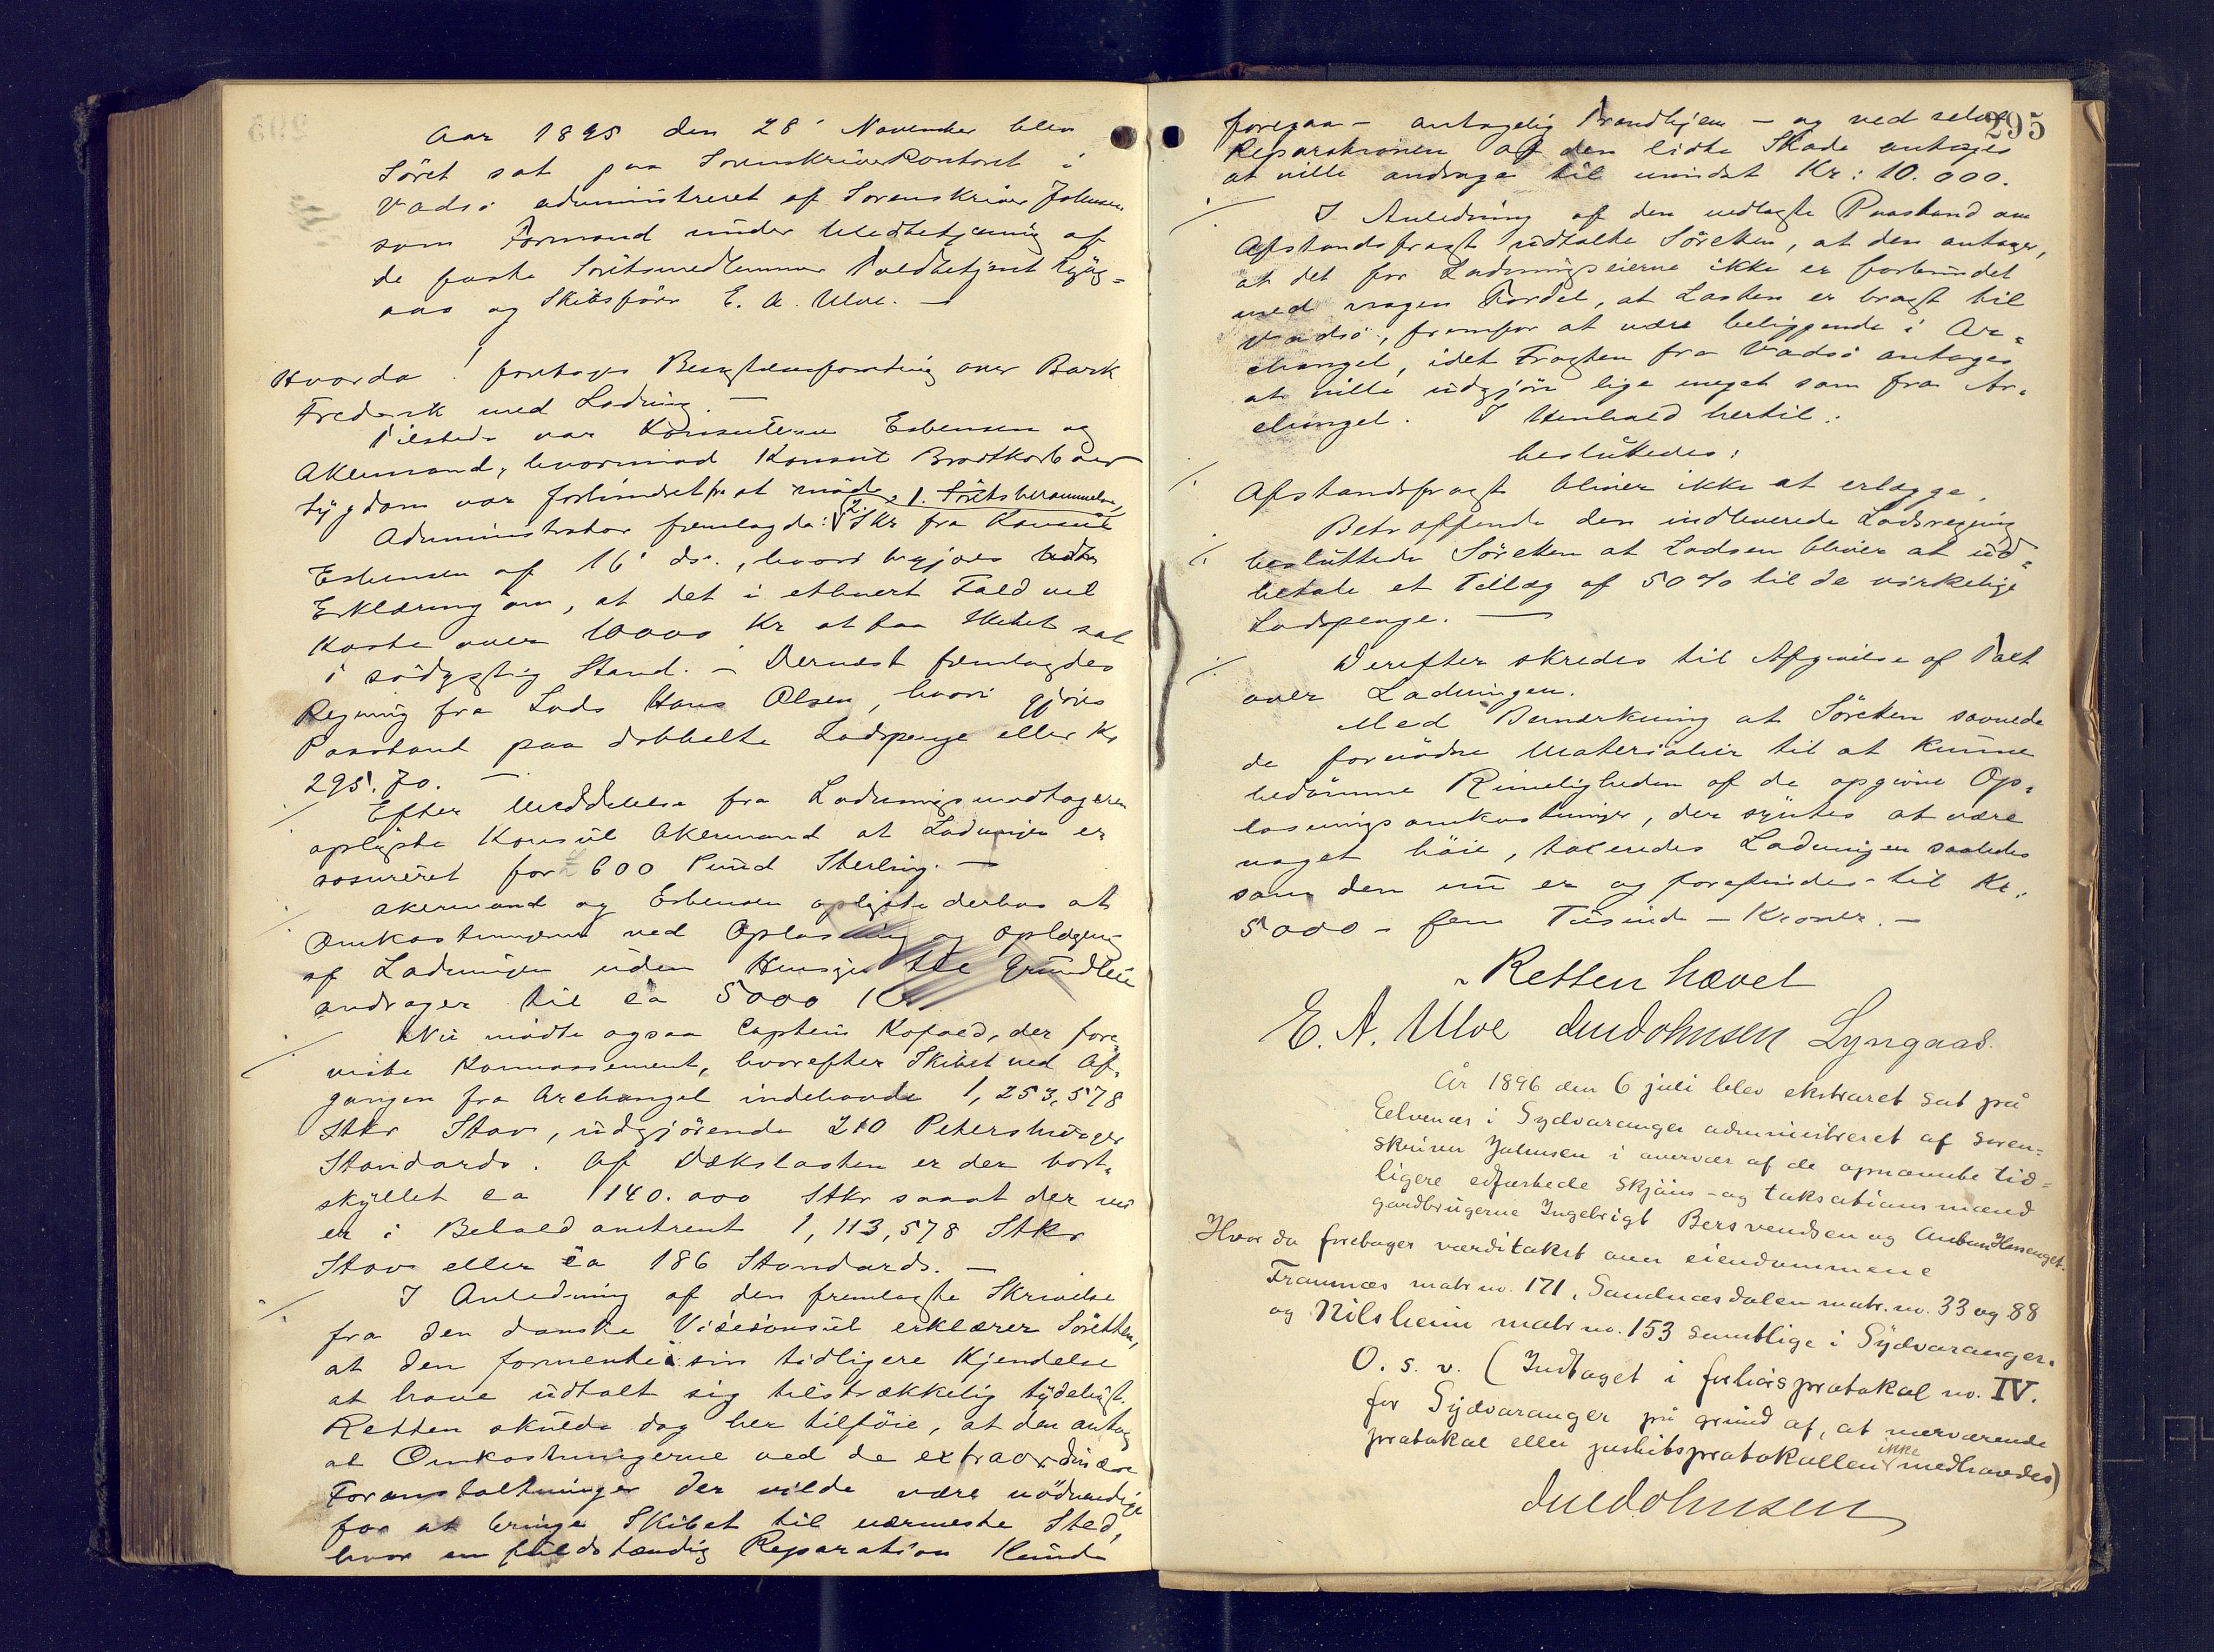 Aar 1895 den 28' November blev
Söret sat paa Sorenskriverkontoret i
Vadsö administreret af Sorenskriver Johnsen
som Formand under Medbetjening af
de faste Söretsmedlemmer Toldbetjent Lyng=
aas og Skibsförer E. A. Ulve. —
Hvorda! foretoges Besigtelsesforretning over Bark
Frederik med Ladning. —
Tilstede var Konsulerne Esbensen og
Akermand, hvorimod Konsul Brodtkorb ved
Sygdom var forhindret fra at möde. 1. Söretsberammelse,
Administrator fremlagde: 2. Skr fra Konsul
Esbensen af 16' ds., hvori begjæres
Erklæring om, at det i ethvert Fald vil
koste over 10000 Kr at faa Skibet sat
i södygtig Stand. — Dernæst fremlagdes
Regning fra Lods Hans Olsen, hvori gjöres
Paastand paa dobbelte Lodspenge eller Kr
295.70. —
Efter Meddelelse fra Ladningsmodtageren
oplyste Konsul Akermand at Ladningen er
assureret for £ 600 Pund Sterling. —
Akermand og Esbensen oplyste derhos at
Omkostningerne ved Oplosning og Oplægning
af Ladningen uden Hensyn til Grundleie
andrager til ca 5000 Kr
Nu mödte ogsaa Captein Kofoed, der fore=
viste Konnossement, hvorefter Skibet ved Af=
gangen fra Archangel indehavde 1,253,578
Stkr Stav, udgjörende 210 Petersburger
Standards. Af Dækslasten er der bort=
skyllet ca 140.000 Stkr saaat der nu
er i Behold omtrent 1,113,578 Stkr
Stav eller ca 186 Standards. —
I Anledning af den fremlagte Skrivelse
fra den danske Visekonsul erklærer Söretten,
at den formente i sin tidligere Kjendelse
at have udtalt sig tilstrækkelig tydeligt.
Retten skulde dog her tilföie, at den antog
at Omkostningerne ved de extraordinære
Foranstaltninger der vilde være nödvendige
for at bringe Skibet til nærmeste Sted,
hvor en fuldstændig Reparation kunde
295
foregaa — antagelig Trondhjem — og ved selve
Reparationen af den lidte Skade antages
at ville andrage til mindst Kr: 10.000.
I Anledning af den nedlagte Paastand om
Afstandsfragt udtalte Söretten, at den antager,
at det for Ladningseierne ikke er forbundet
med nogen Fordel, at Lasten er bragt til
Vadsö, fremfor at være beliggende i Ar=
changel, idet Fragten fra Vadsö antages
at ville udgjöre lige meget som fra Ar=
changel. I Henhold hertil:
besluttedes:
Afstandsfragt bliver ikke at erlægge.
Betræffende den indleverede Lodsregning
besluttede Söretten at Lodsen bliver at ud=
betale et Tillæg af 50% til de virkelige
Lodspenge. —
Derefter skredes til Afgivelse af Taxt
over Ladningen.
Med Bemærkning at Söretten savnede
de fornödne Materialier til at kunne
bedömme Rimeligheden af de opgivne Op=
losningsomkostninger, der syntes at være
noget höie, taxeredes Ladningen saaledes
som den nu er og forefindes til Kr.
5000 — fem Tusinde — Kroner. —
Retten hævet
E. A. Ulve Lyngaas.
År 1896 den 6 juli blev ekstraret sat på
Eelvenæs i Sydvaranger administreret af soren=
skriver Johnsen i overvær af de opnævnte tid=
ligere edfæstede skjöns- og taksationsmænd
gårdbrugerne Ingebrigt Bersvendsen og
Hvor da foretages værditakst over eiendommene
matr no. 171, Sandnæsdalen matr. no. 33 og 88
og Nilsheim matr no. 153 samtlige i Sydvaranger.
O. s. v. (Indtaget i forliksprotokol no. IV.
for Sydvaranger på grund af, at nærværende
protokol eller justitsprotokollen ikke medhavdes)